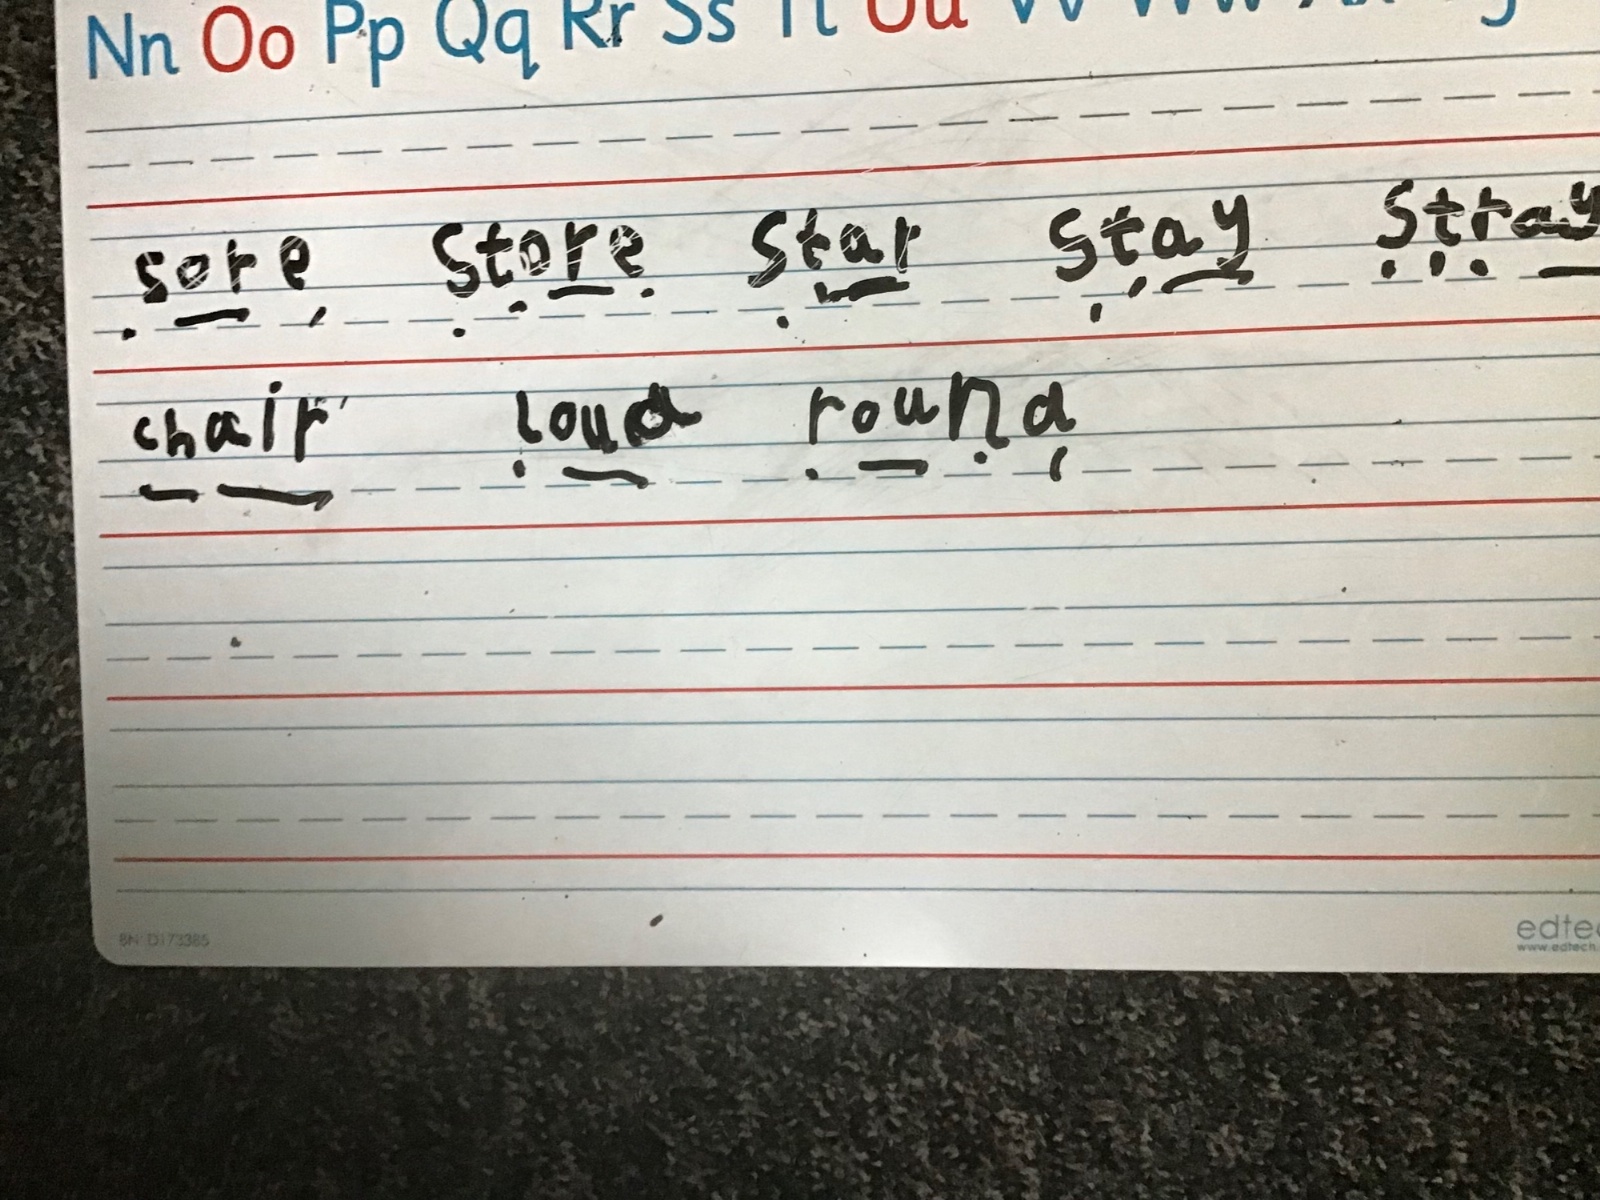 Nn Oo Pp Qq Rr Ss Tt Uu Vv Ww Xx
sore store star stay stray
chair loud round
BN: D173385
edtec
www.edtech.